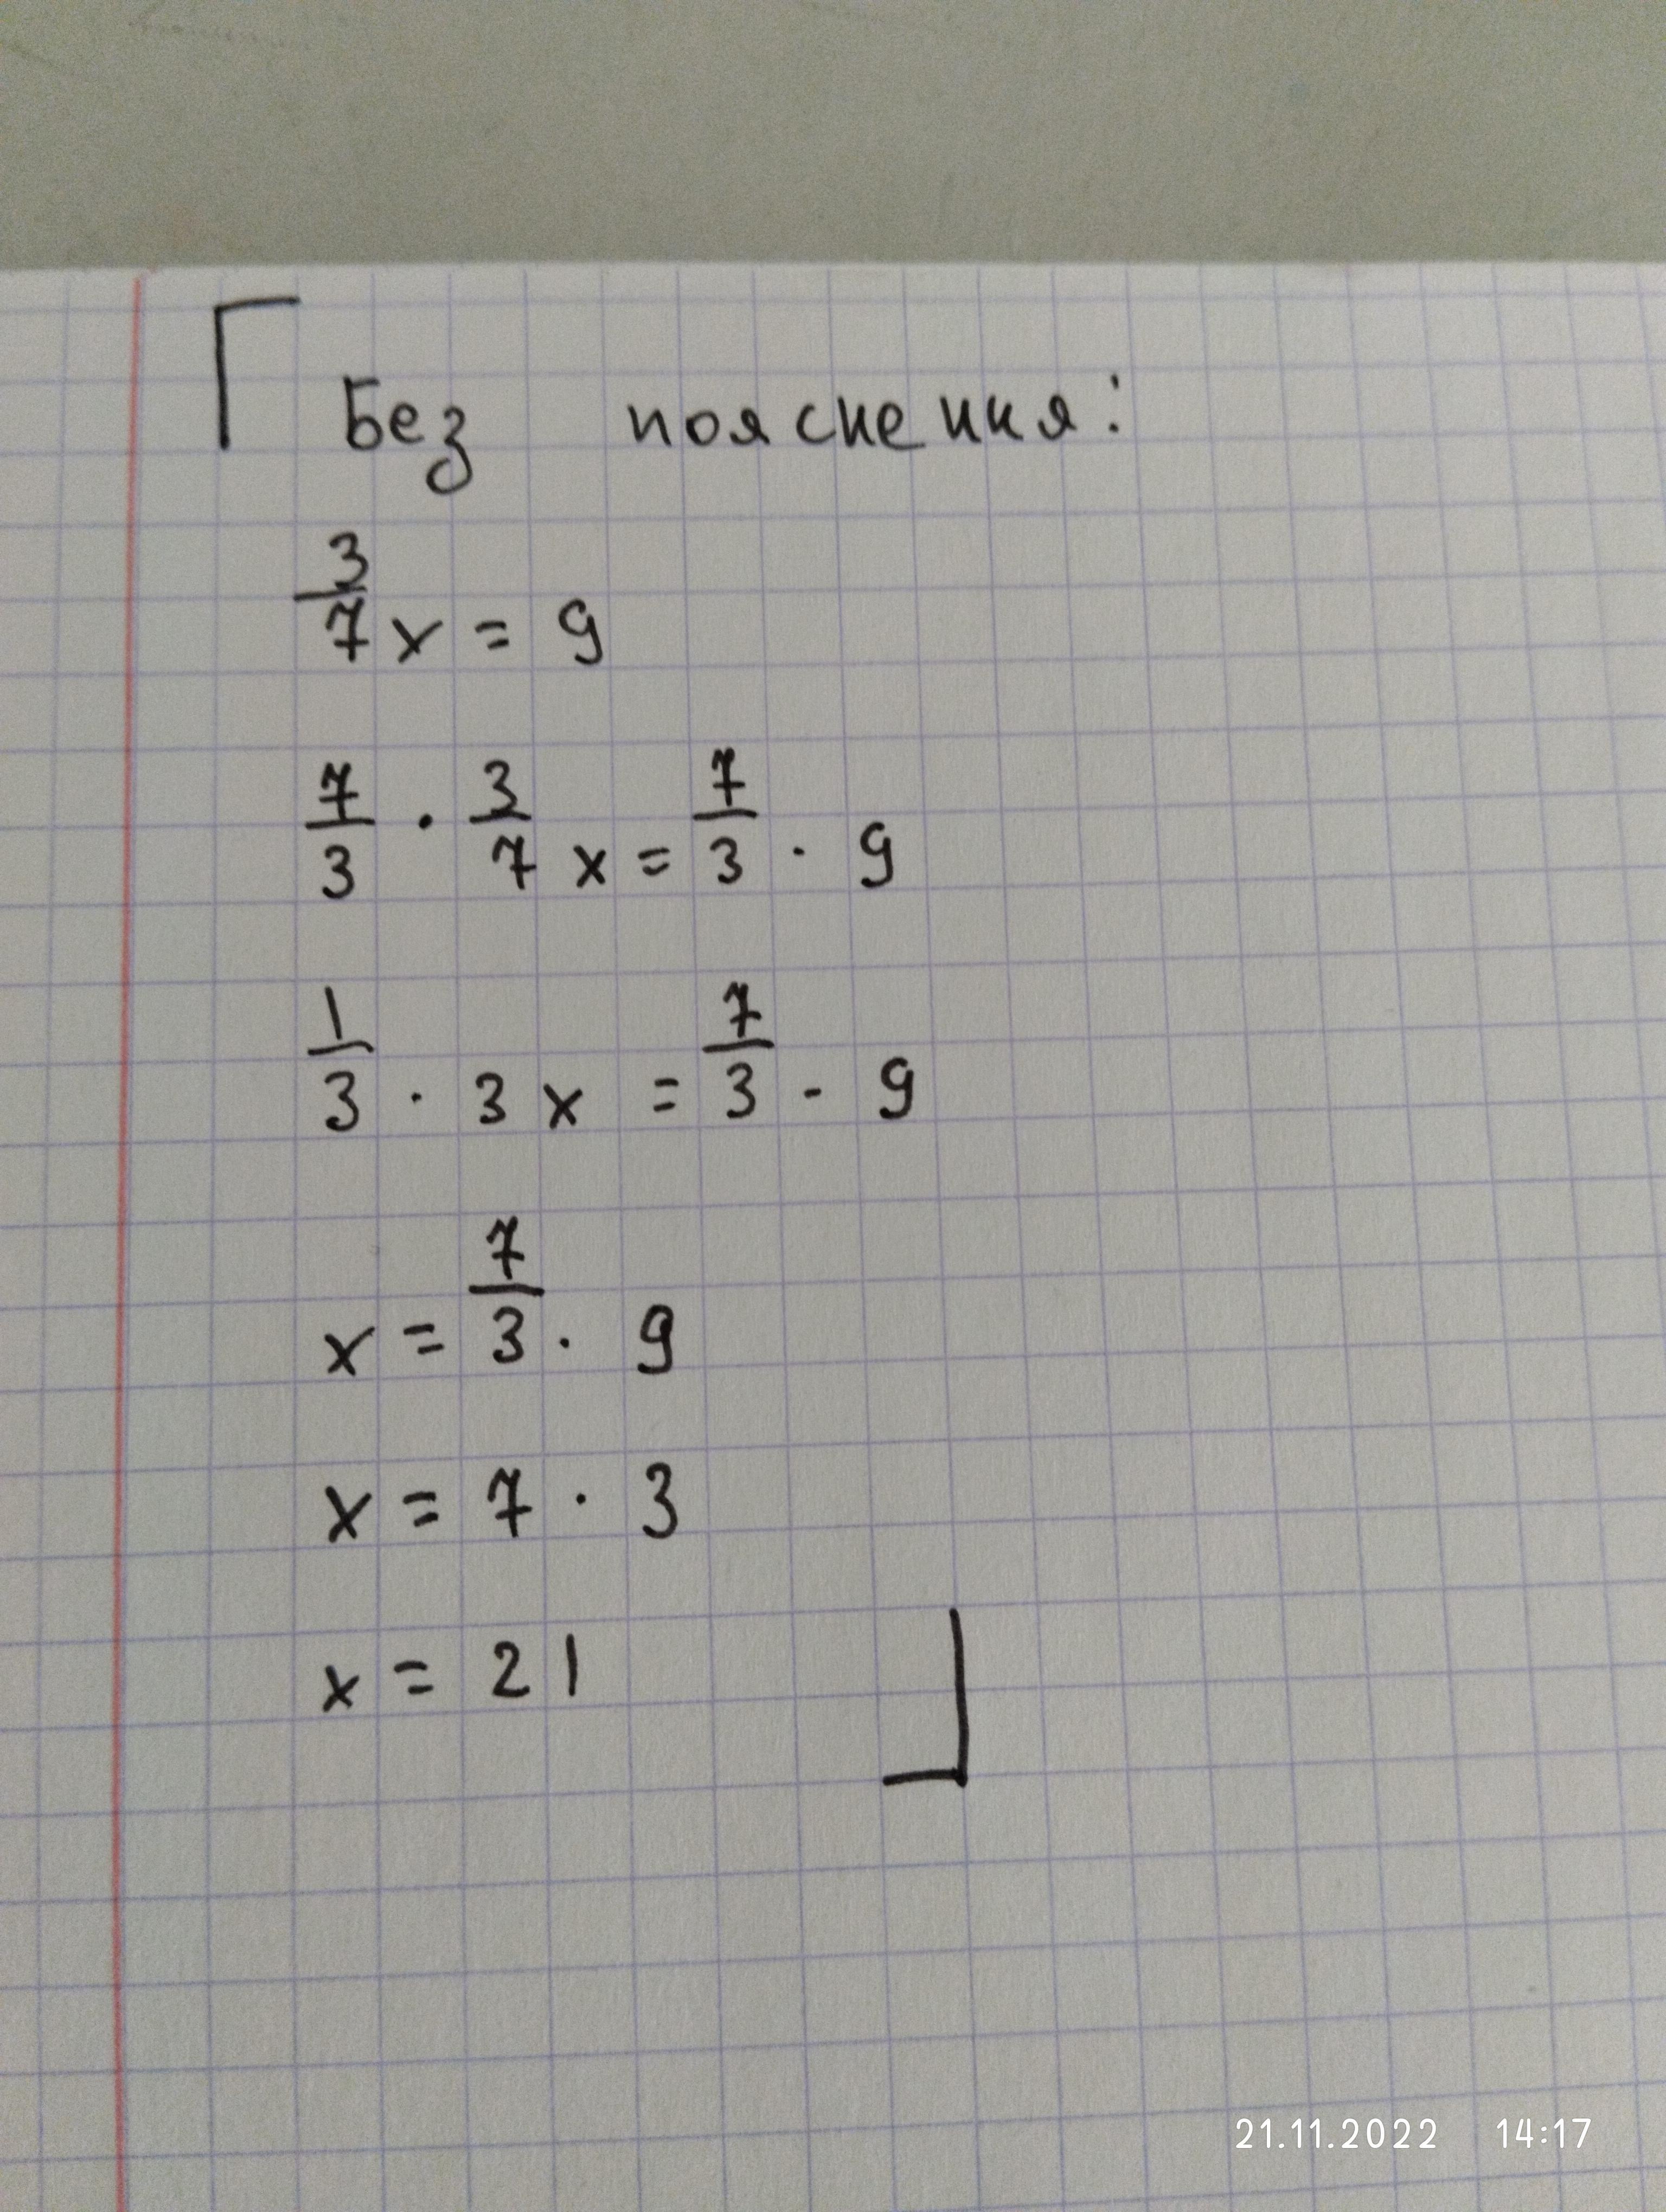 Без пояснения:
3/7 x = 9
7/3 · 3/7 x = 7/3 · 9
1/3 · 3x = 7/3 · 9
x = 7/3 · 9
x = 7 · 3
x = 21
21.11.2022 14:17